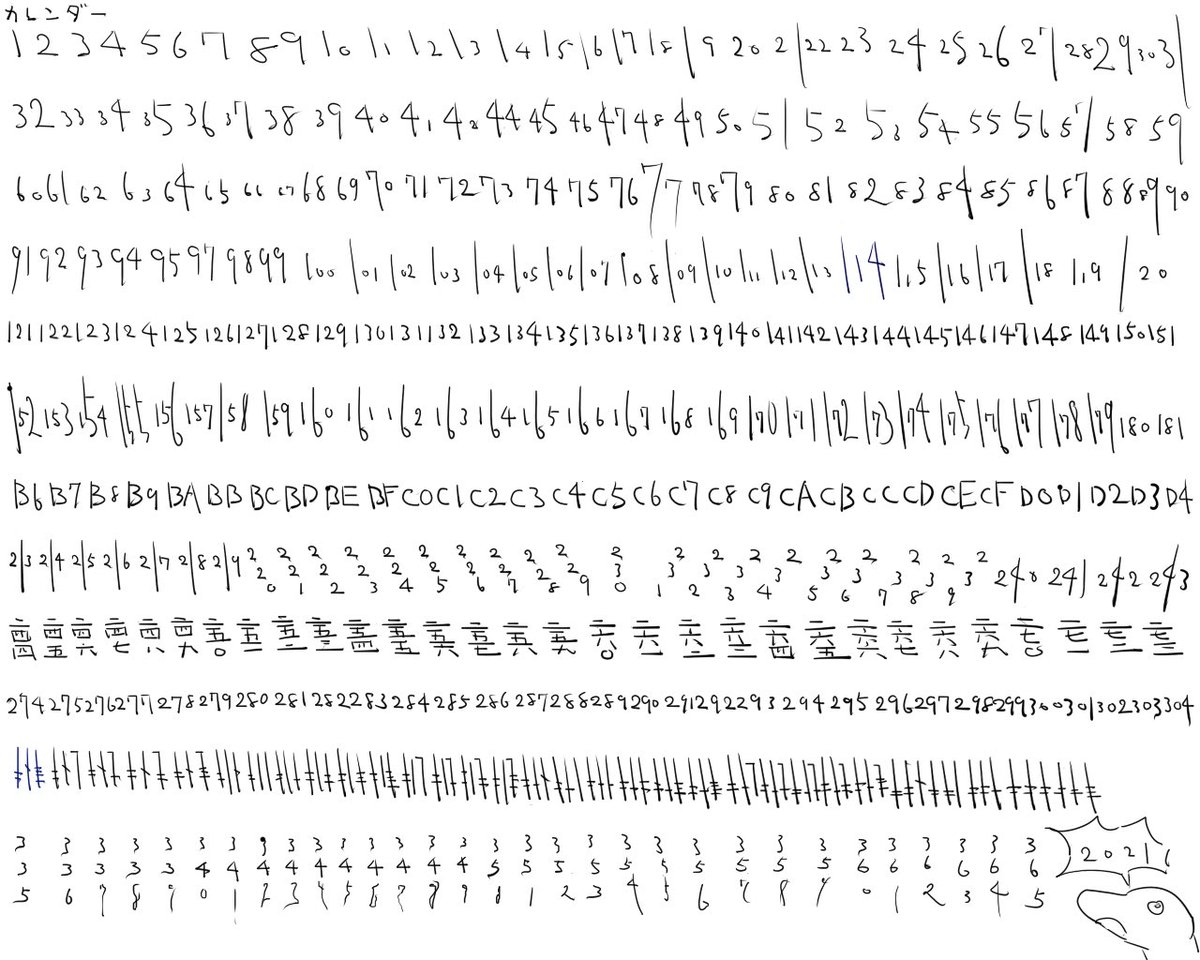 カレンダー
1 2 3 4 5 6 7 8 9 10 11 12 13 14 15 16 17 18 19 20 21 22 23 24 25 26 27 28 29 30 31
32 33 34 35 36 37 38 39 40 41 42 44 45 46 47 48 49 50 51 52 53 54 55 56 57 58 59
60 61 62 63 64 65 66 67 68 69 70 71 72 73 74 75 76 77 78 79 80 81 82 83 84 85 86 87 88 89 90
91 92 93 94 95 97 98 99 100 101 102 103 104 105 106 107 108 109 110 111 112 113 114 115 116 117 118 119 120
121 122 123 124 125 126 127 128 129 130 131 132 133 134 135 136 137 138 139 140 141 142 143 144 145 146 147 148 149 150 151
152 153 154 155 156 157 158 159 160 161 162 163 164 165 166 167 168 169 170 171 172 173 174 175 176 177 178 179 180 181
B6 B7 B8 B9 BA BB BC BD BE BF C0 C1 C2 C3 C4 C5 C6 C7 C8 C9 CA CB CC CD CE CF D0 D1 D2 D3 D4
213 214 215 216 217 218 219 220 221 222 223 224 225 226 227 228 229 230 231 232 233 234 235 236 237 238 239 240 241 242 243
二四四 二四五 二四六 二四七 二四八 二四九 二五〇 二五一 二五二 二五三 二五四 二五五 二五六 二五七 二五八 二五九 二六〇 二六一 二六二 二六三 二六四 二六五 二六六 二六七 二六八 二六九 二七〇 二七一 二七二 二七三
274 275 276 277 278 279 280 281 282 283 284 285 286 287 288 289 290 291 292 293 294 295 296 297 298 299 300 301 302 303 304
335 336 337 338 339 340 341 342 343 344 345 346 347 348 349 350 351 352 353 354 355 356 357 358 359 360 361 362 363 364 365
2021